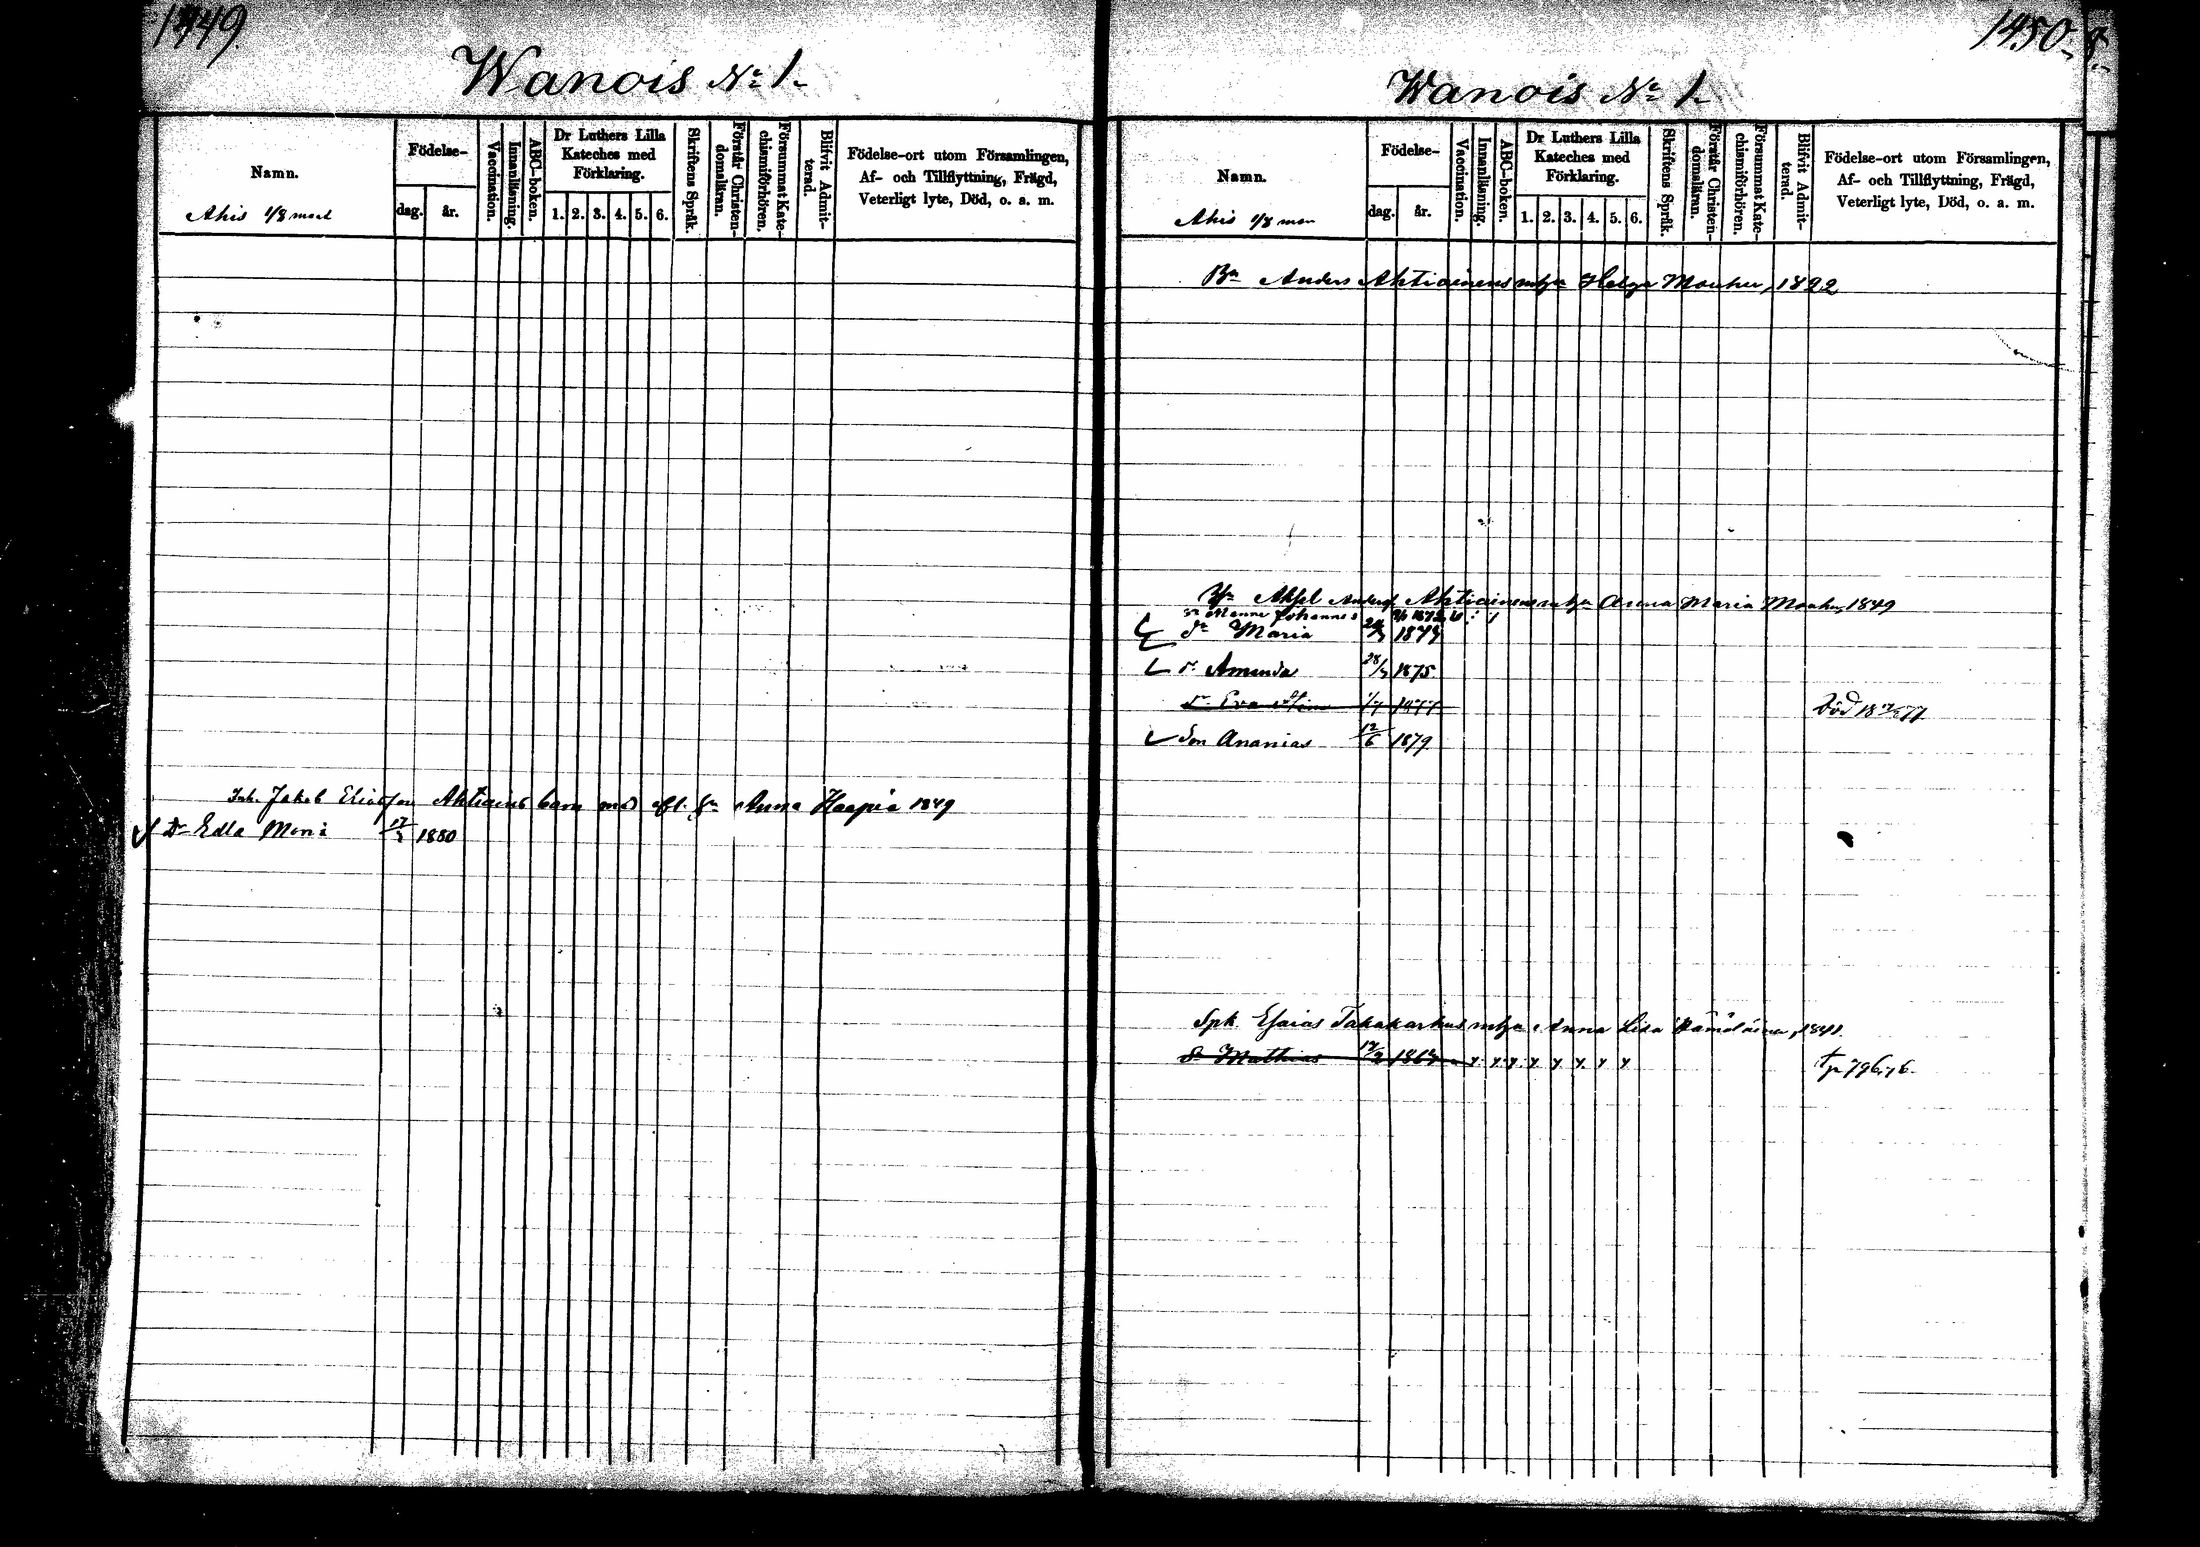 1449.
Wanois No 1.
Namn.
Födelse-
dag.
år.
Vaccination.
Innanläsning.
ABC-boken.
Dr Luthers Lilla
Kateches med
Förklaring.
1. 2. 3. 4. 5. 6.
Skriftens Språk.
Förstår Christen-
domsläran.
Försummat Kate-
chismiförhören.
Blifvit Admit-
terad.
Födelse-ort utom Församlingen,
Af- och Tillflyttning, Frägd,
Veterligt lyte, Död, o. a. m.
Ahis 1/8 mant
Inh. Jakob Eliasson Ahtiains barn med afl. Anna Haapia 1849
Dr Edla 17 1880
1450.
Wanois No 1.
Namn.
Födelse-
dag.
år.
Vaccination.
Innanläsning.
ABC-boken.
Dr Luthers Lilla
Kateches med
Förklaring.
1. 2. 3. 4. 5. 6.
Skriftens Språk.
Förstår Christen-
domsläran.
Försummat Kate-
chismiförhören.
Blifvit Admit-
terad.
Födelse-ort utom Församlingen,
Af- och Tillflyttning, Frägd,
Veterligt lyte, Död, o. a. m.
Ahis 1/8 man
Bn Anders Ahtiainens Helga 1822
Aksel Andersf Ahtiainens Anna Maria 1849
Johannes
dr Maria
dr Amanda 1875
dr Eva Stina 1877 Död
Son Ananias 12/6 1879
Spk. Esaias Takakarhus Anna Lisa Hämäläinen, 1841.
Sn Mathias 17/2 p 796, 76.